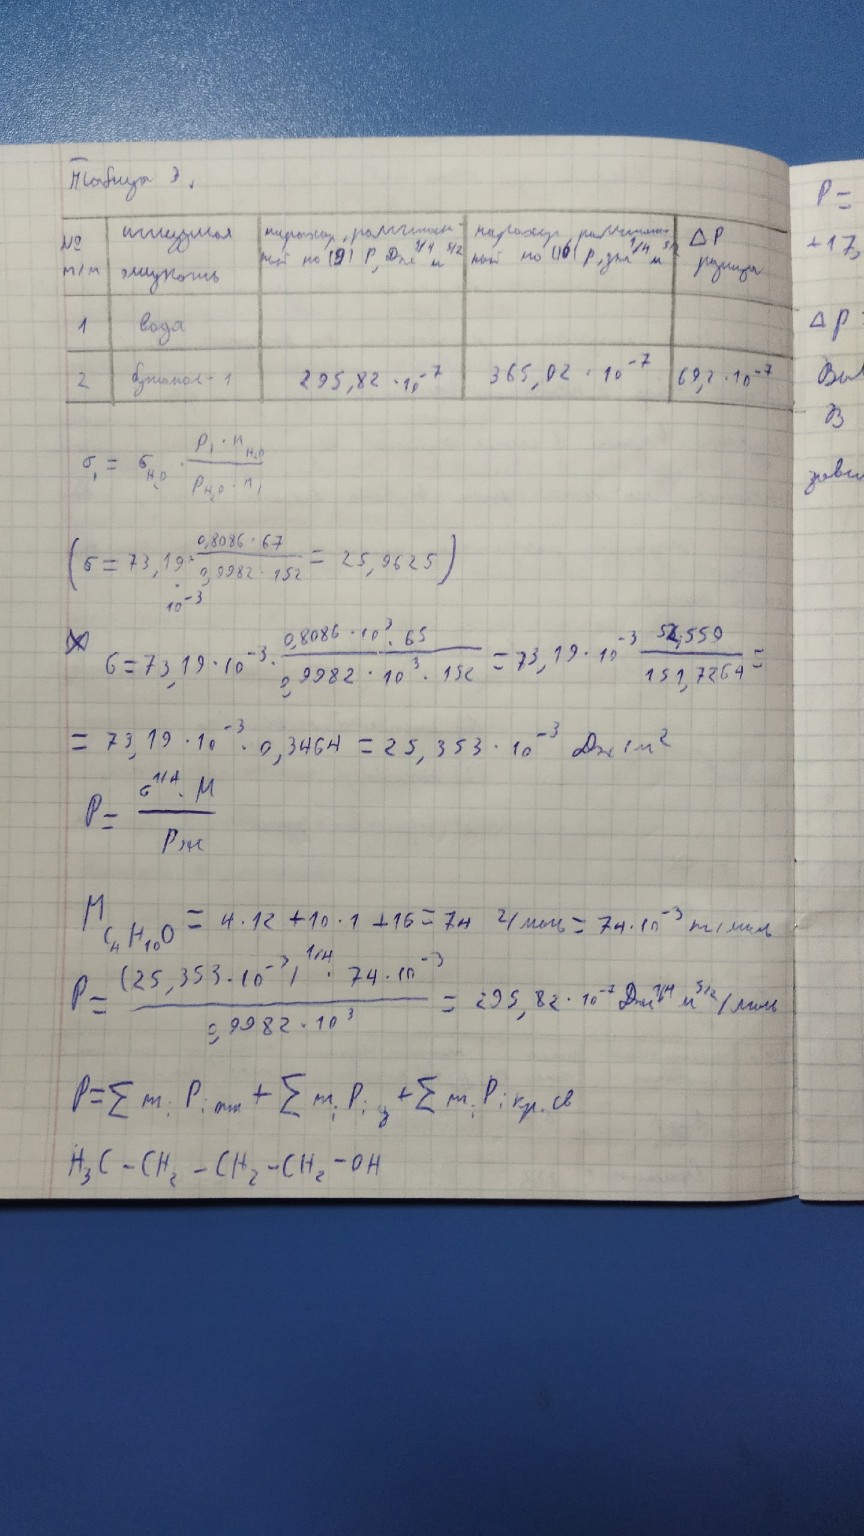 Таблица 3.
№ п/п
исследуемая жидкость
парахор, рассчитанный по (9) P, Дж^1/4 м^5/2
парахор, рассчитанный по (16) P, Дж^1/4 м^5/2
ΔP разница
1 вода
2 бутанол-1 295,82·10^-7 365,02·10^-7 69,2·10^-7
σ₁ = σ_H₂O · (ρ₁·n_H₂O)/(ρ_H₂O·n₁)
(σ = 73,19·10^-3 · (0,8086·67)/(0,9982·152) = 25,9625)
σ = 73,19·10^-3 · (0,8086·10^3·65)/(0,9982·10^3·152) = 73,19·10^-3 52,559/151,7264 =
= 73,19·10^-3 · 0,3464 = 25,353·10^-3 Дж/м²
P = (σ^1/4·M)/ρж
M C₄H₁₀O = 4·12 + 10·1 + 16 = 74 г/моль = 74·10^-3 кг/моль
P = ((25,353·10^-3)^1/4 · 74·10^-3)/(0,9982·10^3) = 295,82·10^-7 Дж^1/4 м^5/2/моль
P = Σ mᵢ Pᵢ ат + Σ mᵢ Pᵢ ц + Σ mᵢ Pᵢ кр.св
H₃C – CH₂ – CH₂ – CH₂ – OH
P =
+17,
ΔP
В